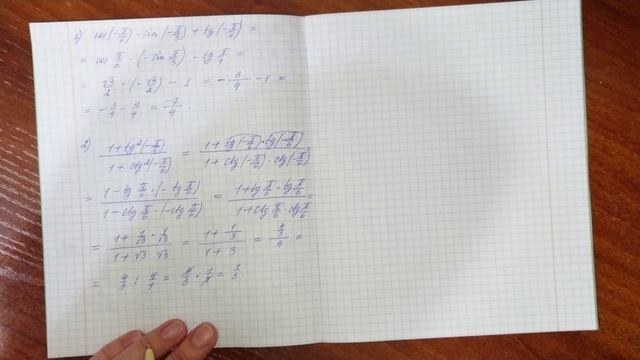 1) cos(-π/6) · sin(-π/3) + tg(-π/4) =
= cos π/6 · (-sin π/3) - tg π/4 =
= √3/2 · (-√3/2) - 1 = -3/4 - 1 =
= -3/4 - 4/4 = -7/4.
2) (1+tg²(-π/6))/(1+ctg²(-π/6)) = (1+tg(-π/6)·tg(-π/6))/(1+ctg(-π/6)·ctg(-π/6))
= (1-tg π/6 · (-tg π/6))/(1-ctg π/6 · (-ctg π/6)) = (1+tg π/6 · tg π/6)/(1+ctg π/6 · ctg π/6) =
= (1+ 1/√3 · 1/√3)/(1+√3 · √3) = (1+ 1/3)/(1+3) = (4/3)/4 =
= 4/3 : 4/1 = 4/3 · 1/4 = 1/3.